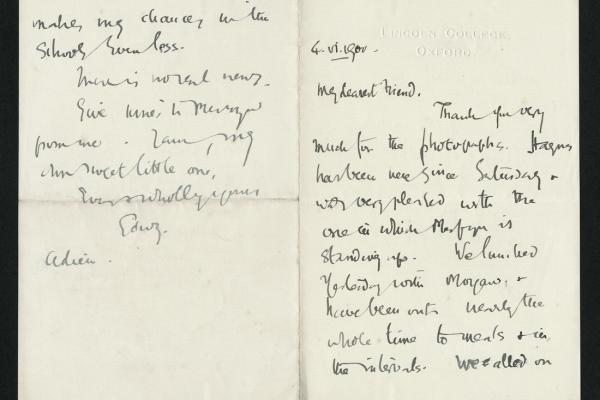 makes my chances in the
Schools even less.
There is no real news.
Give kisses to Merfyn
from me. I am, my
own sweet little one,
Ever & wholly yours
Edwy.
Adieu.
LINCOLN COLLEGE,
OXFORD.
4. vi. 1900.
My dearest friend,
Thank you very
much for the photographs. Haynes
has been here since Saturday &
was very pleased with the
one in which Merfyn is
standing up. We lunched
yesterday with Morgan, &
have been out nearly the
whole time to meals & in
the intervals. We called on